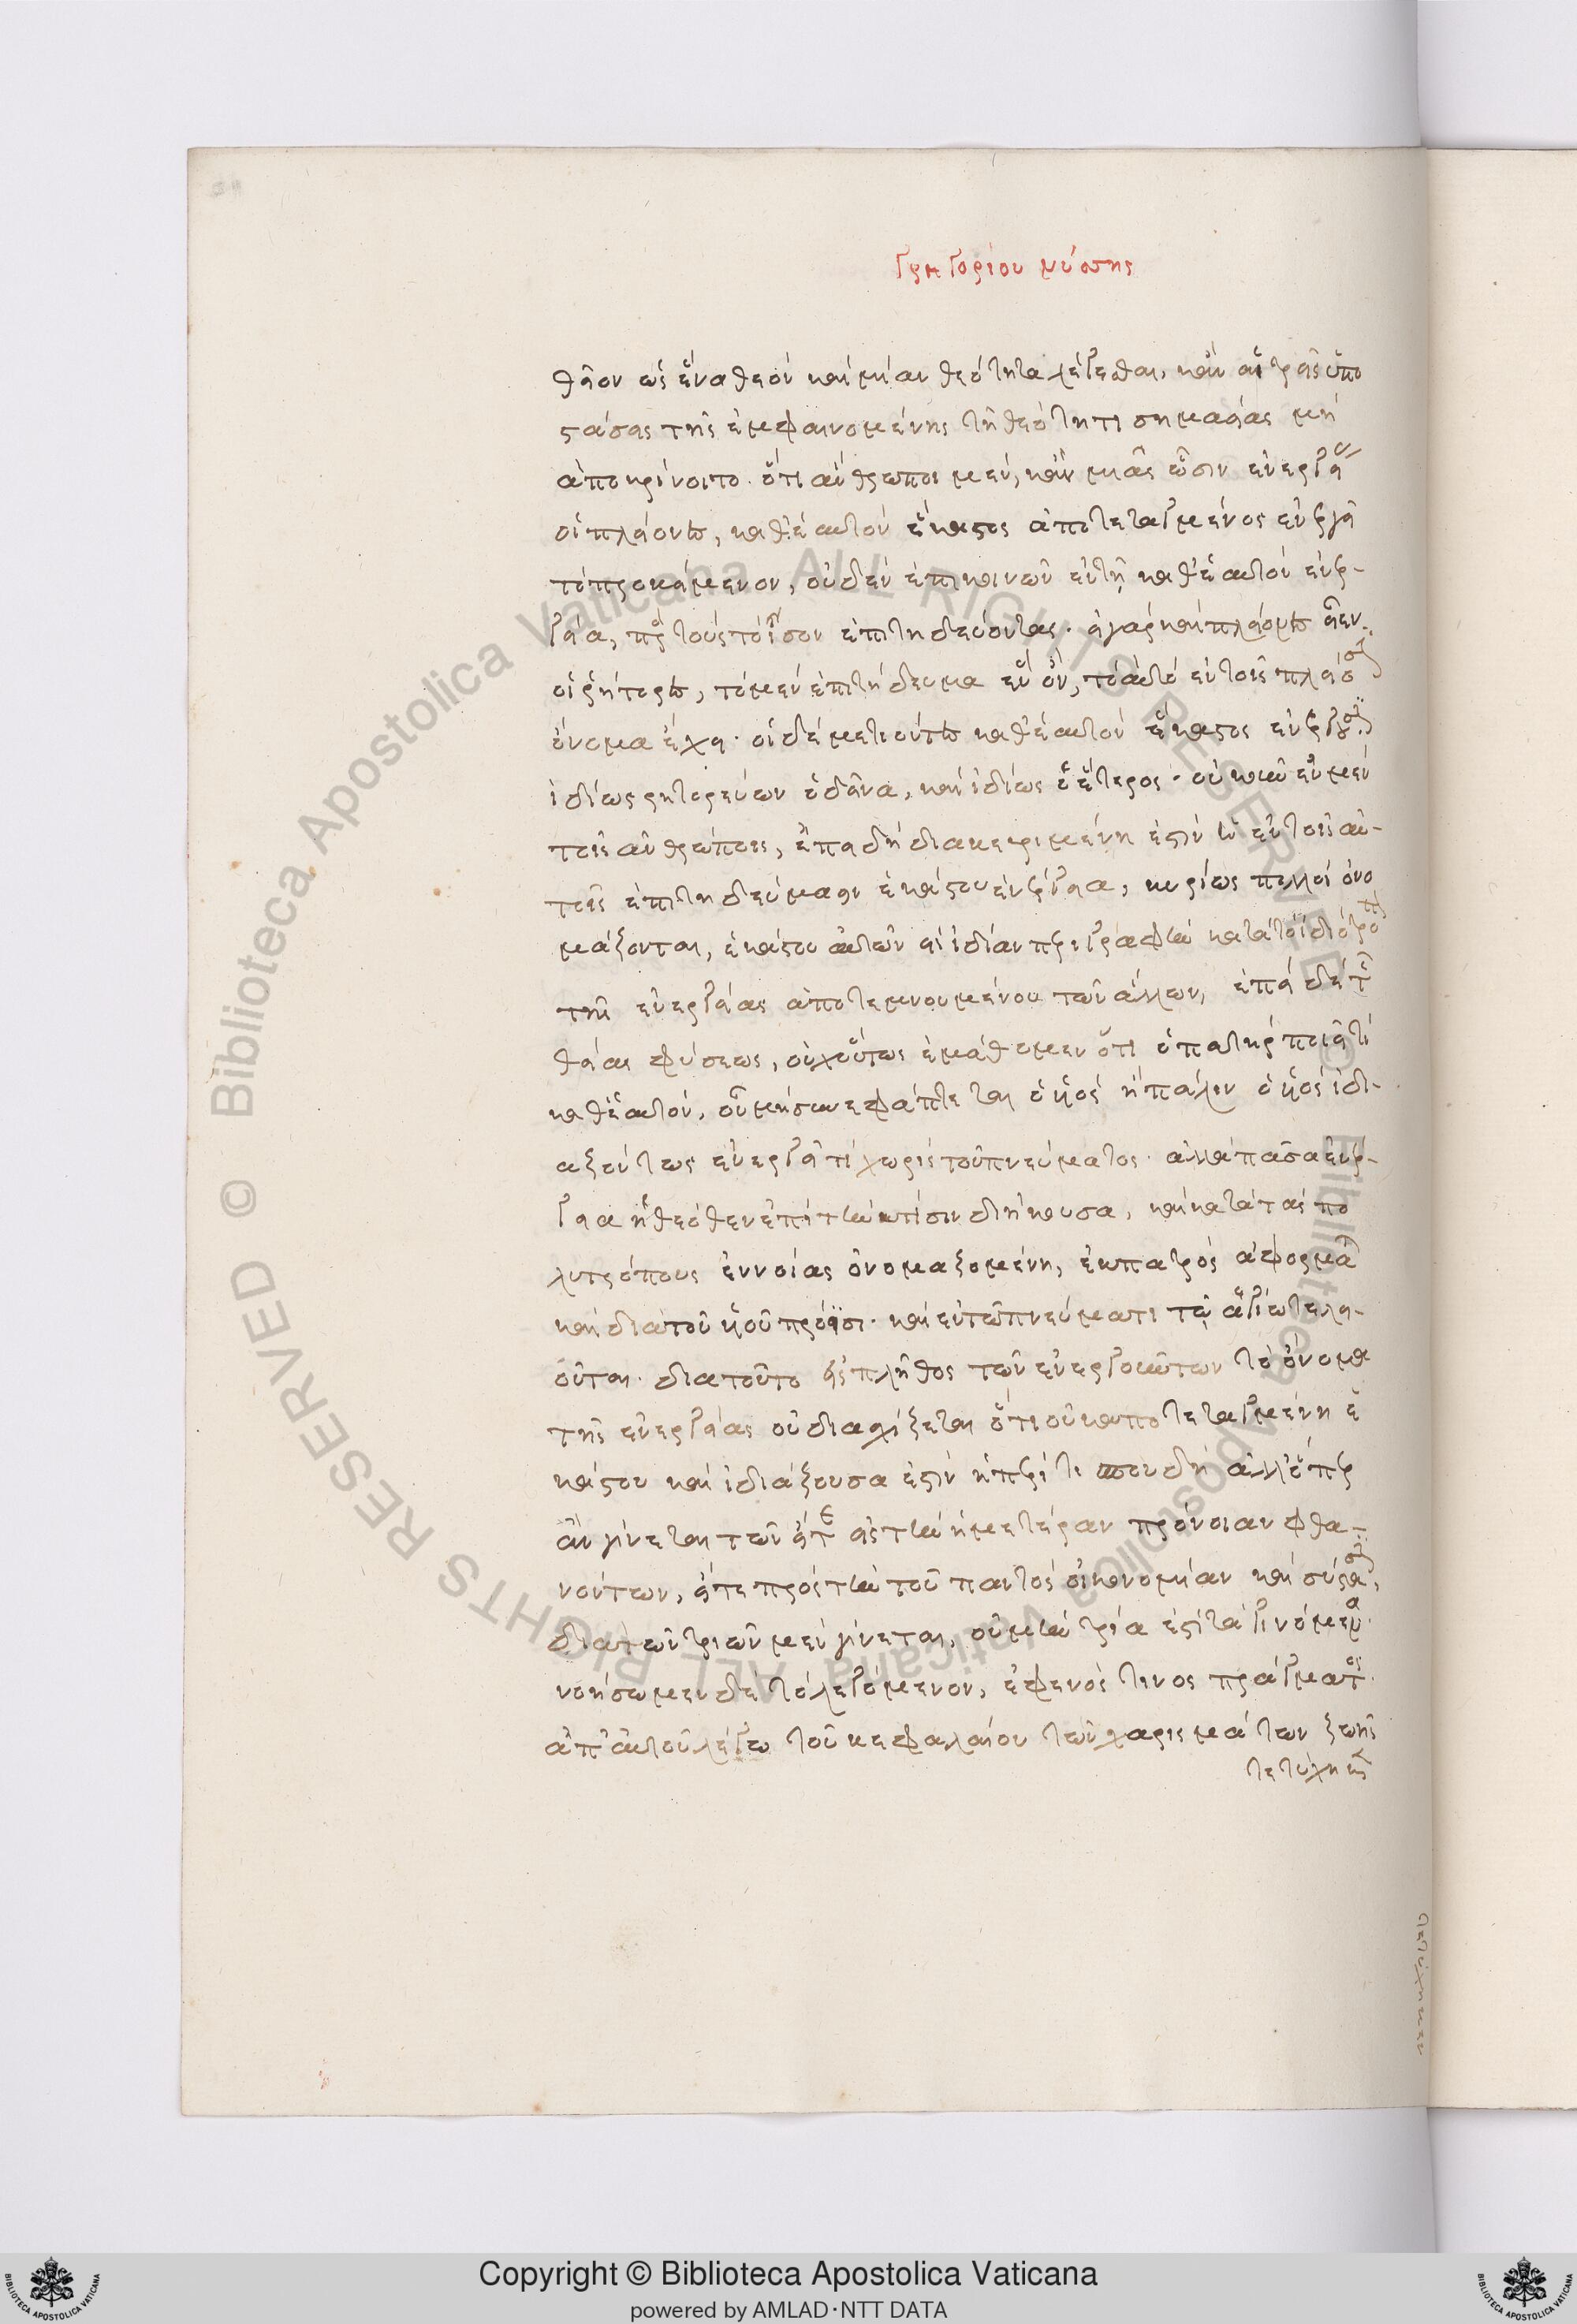 Γρηγορίου νύσσης
θεῖον ὡς ἕνα θεὸν καὶ μίαν θεότητα λέγεσθαι, κἂν αἱ τρεῖς ὑπο
στάσεις τῆς ἐμφαινομένης τῇ θεότητι σημασίας μὴ
ἀποκρίνοιτο. ὅτι ἄνθρωποι μὲν, κἂν μιᾶς ὦσιν ἐνεργείας
οἱ πλείονες, καθ' ἑαυτὸν ἕκαστος ἀποτεταγμένος ἐνεργεῖ
τὸ προκείμενον, οὐδὲν ἐπικοινωνῶν ἐν τῇ καθ' ἑαυτὸν ἐνερ-
γείᾳ, πρὸς τοὺς τὸ ἴσον ἐπιτηδεύοντας. εἰ γὰρ καὶ πλείονες εἶεν
οἱ ῥήτορες, τὸ μὲν ἐπιτήδευμα ἓν ὂν, τὸ αὐτὸ ἐν τοῖς πλείοσιν
ὄνομα ἔχει. οἱ δὲ μετιόντες καθ' ἑαυτὸν ἕκαστος ἐνεργεῖ
ἰδίως ῥητορεύων ὁ δεῖνα, καὶ ἰδίως ὁ ἕτερος. οὐκοῦν ἐν μὲν
τοῖς ἀνθρώποις, ἐπειδὴ διακεκριμένη ἐστὶν ἡ ἐν τοῖς αὐ-
τοῖς ἐπιτηδεύμασιν ἑκάστου ἐνέργεια, κυρίως πολλοὶ ὀνο
μάζονται, ἑκάστου αὐτῶν εἰς ἰδίαν περιγραφὴν κατὰ τὸ ἰδιότροπον
τῆς ἐνεργείας ἀποτεμνομένου τῶν ἄλλων, ἐπεὶ δὲ τῆς
θείας φύσεως, οὐχ οὕτως ἐμάθομεν ὅτι ὁ πατὴρ ποιεῖ τι
καθ' ἑαυτὸν, οὗ μὴ συνεφάπτεται ὁ υἱὸς ἢ πάλιν ὁ υἱὸς ἰδι-
αζόντως ἐνεργεῖ τι χωρὶς τοῦ πνεύματος. ἀλλὰ πᾶσα ἐνέρ-
γεια ἡ θεόθεν ἐπὶ τὴν κτίσιν διήκουσα, καὶ κατὰ τὰς πο
λυτρόπους ἐννοίας ὀνομαζομένη, ἐκ πατρὸς ἀφορμᾶται
καὶ διὰ τοῦ υἱοῦ πρόεισι. καὶ ἐν τῷ πνεύματι τῷ ἁγίῳ τελει-
οῦται. διὰ τοῦτο εἰς πλῆθος τῶν ἐνεργούντων τὸ ὄνομα
τῆς ἐνεργείας οὐ διασχίζεται ὅτι οὐκ ἀποτεταγμένη ἑ
κάστου καὶ ἰδιάζουσα ἐστὶν ἡ περί τι σπουδὴ ἀλλ' ὅπερ
ἂν γίνεται τῶν εἴτε εἰς τὴν ἡμετέραν πρόνοιαν φθα-
νόντων, εἴτε πρὸς τὴν τοῦ παντὸς οἰκονομίαν καὶ σύστασιν,
διὰ τῶν τριῶν μὲν γίνεται, οὐ μὴν τρία ἐστὶ τὰ γινόμενα.
νοήσωμεν δὲ τὸ λεγόμενον, ἐφ' ἑνός τινος πράγματος.
ἀπ' αὐτοῦ λέγω τοῦ κεφαλαίου τῶν χαρισμάτων ζωῆς
τετύχηκεν
τετύχηκεν